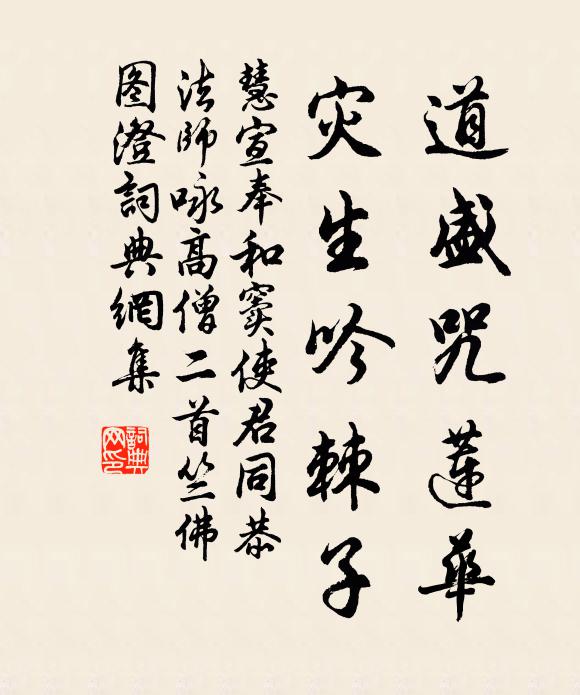 道盛咒蓮華
灾生吟棘子
慧宣奉和窦使君同恭
法師咏高僧二首竺佛
图澄詞典網集
詞典
网印